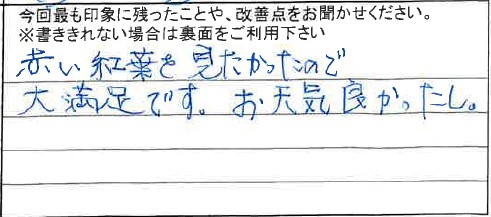 今回最も印象に残ったことや、改善点をお聞かせください。
※書ききれない場合は裏面をご利用下さい
赤い紅葉を見たかったので
大満足です。お天気良かったし。